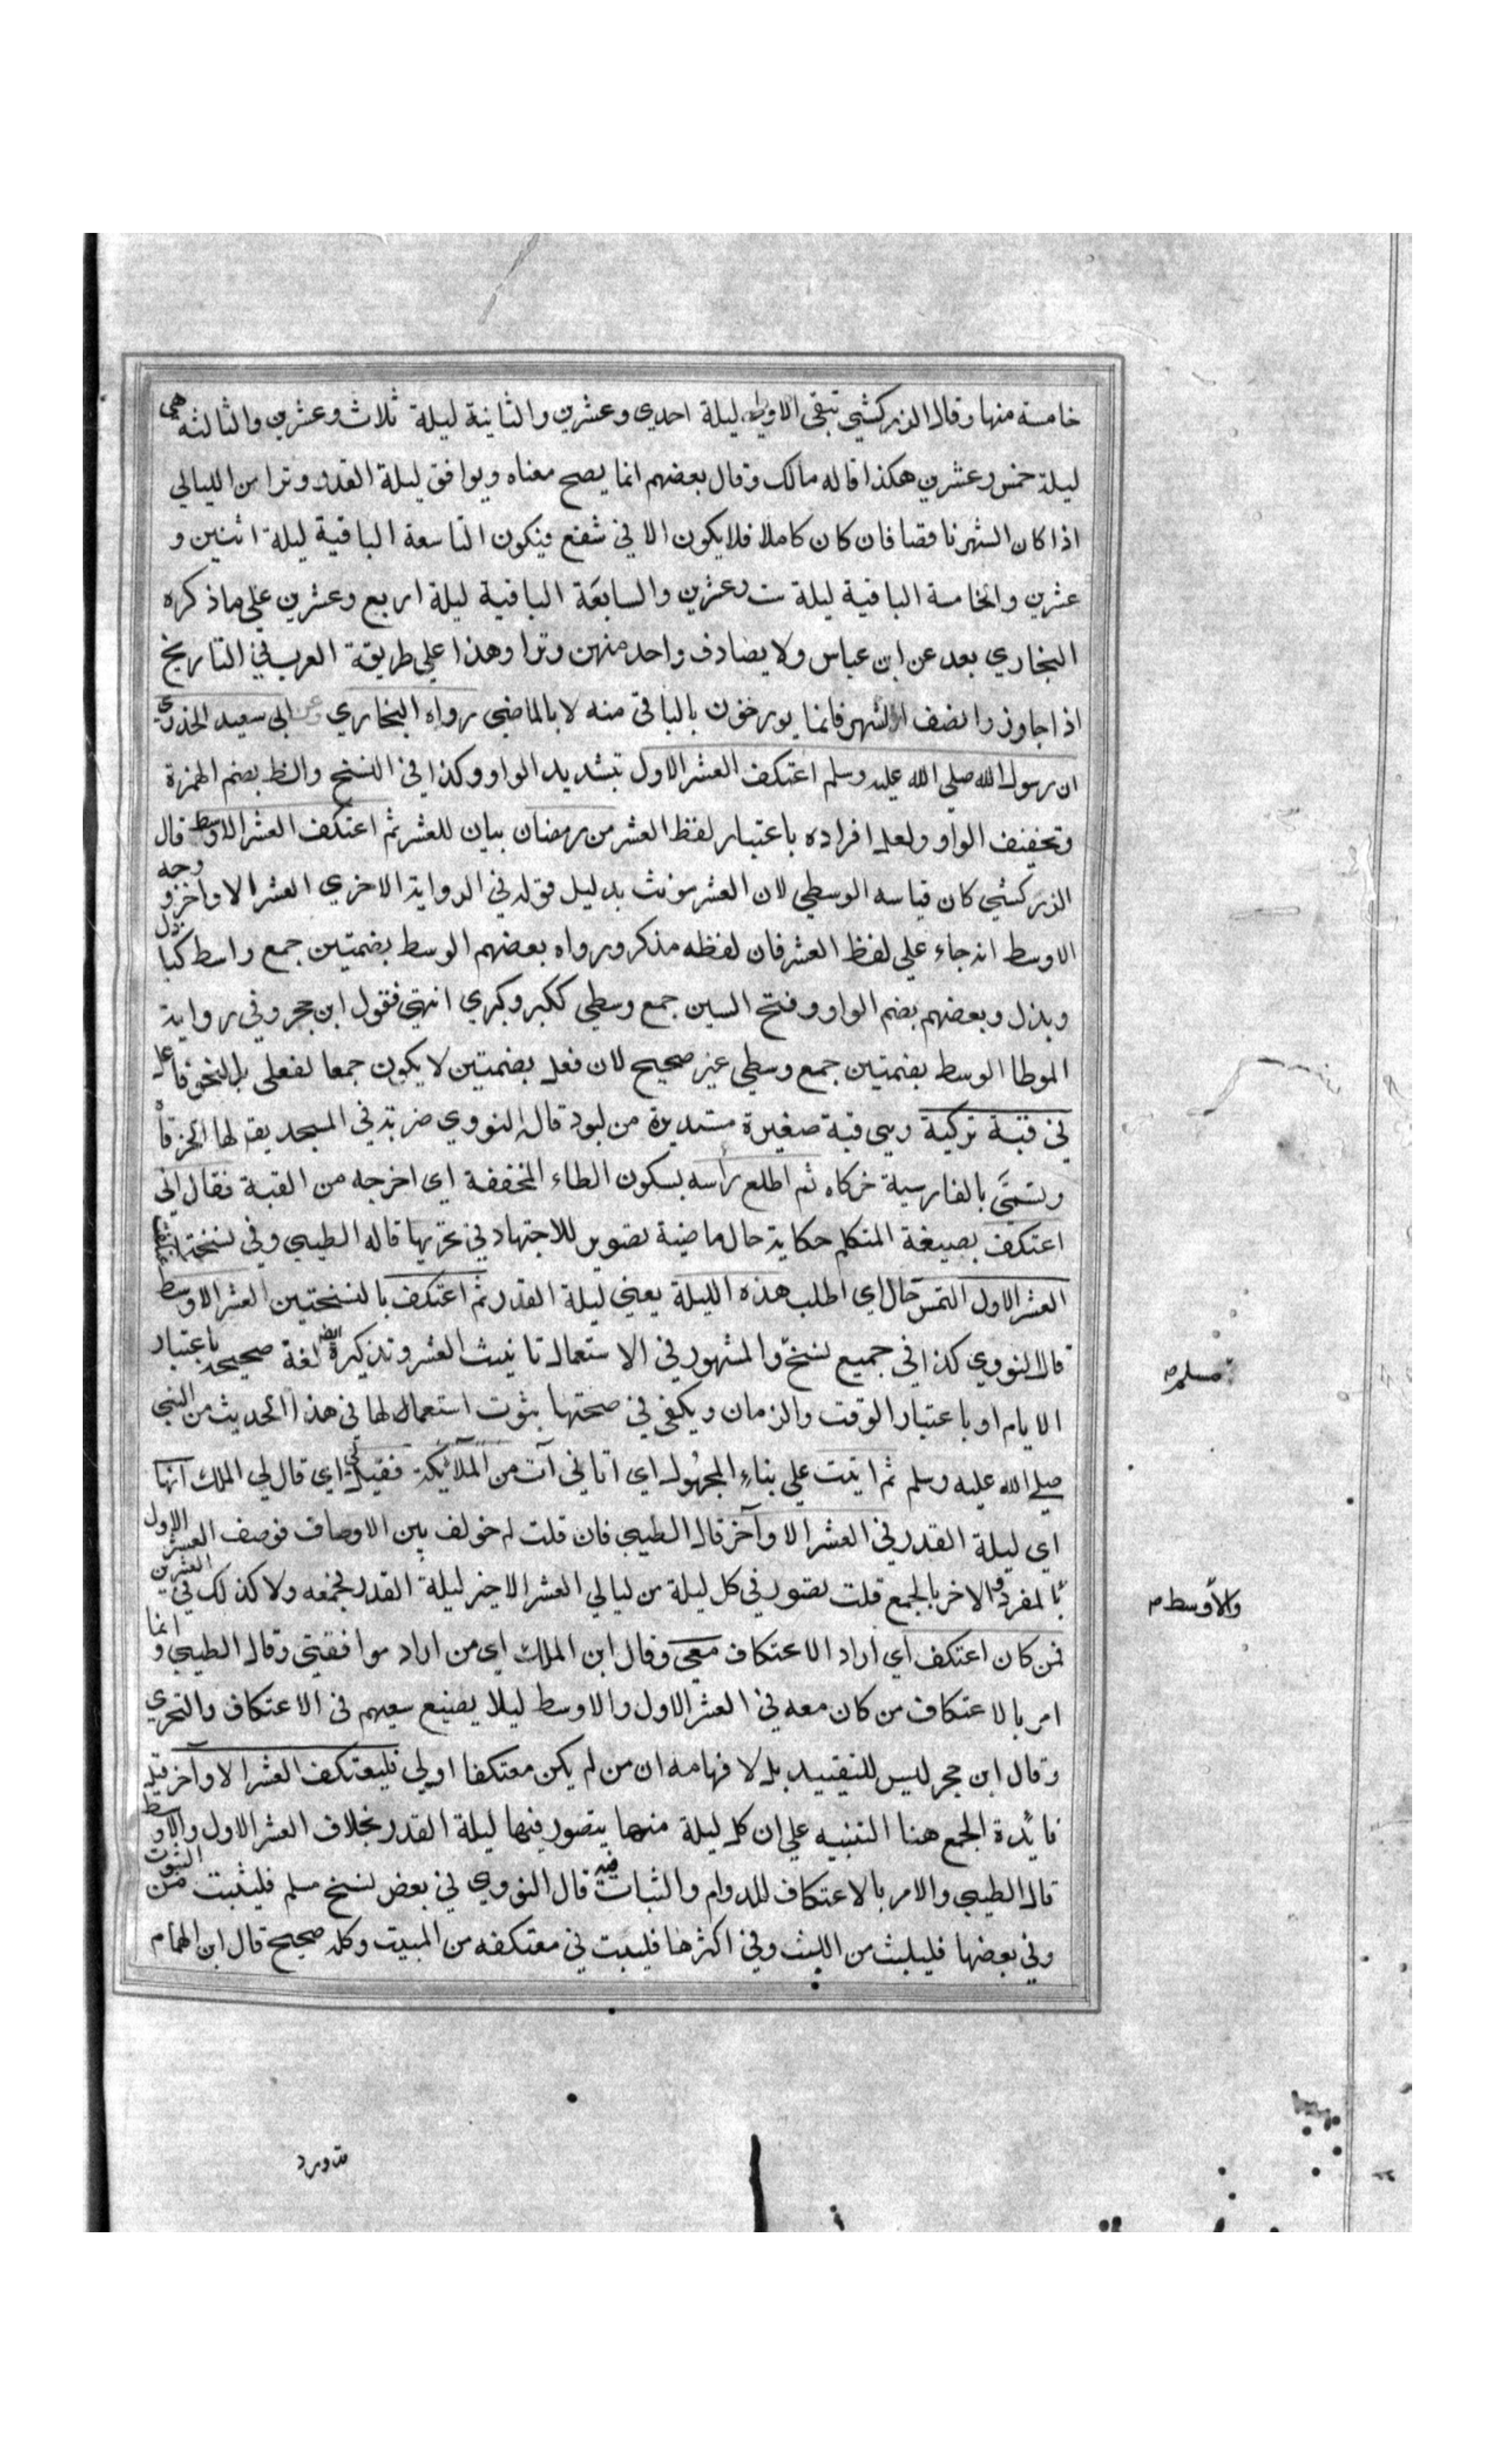 خامسة منها وقال الزركشي تبقى الاولى ليلة احدي وعشرين والثانية ليلة ثلاث وعشرين والثالثة هي
ليلة خمس وعشرين هكذا قاله مالك وقال بعضهم انما يصح معناه ويوافق ليلة القدر وترا من الليالي
اذا كان الشهر ناقصا فان كان كاملا فلا يكون الا في شفع فيكون التاسعة الباقية ليلة اثنين و
عشرين والخامسة الباقية ليلة ست وعشرين والسابعة الباقية ليلة اربع وعشرين علي ماذكره
البخاري بعد عن ابن عباس ولا يصادف واحد منهن وترا وهذا علي طريقة العرب في التاريخ
اذا جاوزوا نصف الشهر فانما يورخون بالباقي منه لا بالماضي رواه البخاري وعن ابي سعيد الخدري
ان رسول الله صلي الله عليه وسلم اعتكف العشر الاول بتشديد الواو وكذا في النسخ والظ بضم الهمزة
وتخفيف الواو ولعل افراده باعتبار لفظ العشر من رمضان بيان للعشر ثم اعتكف العشر الاوسط قال
الزركشي كان قياسه الوسطي لان العشر مونث بدليل قوله في الرواية الاخري العشر الاواخر و وجه
الاوسط انه جاء علي لفظ العشر فان لفظه مذكر ورواه بعضهم الوسط بضمتين جمع واسط كبازل
وبذل وبعضهم بضم الواو وفتح السين جمع وسطي ككبر وكبري انتهي فقول ابن حجر وفي رواية
الموطا الوسط بضمتين جمع وسطي غير صحيح لان فعل بضمتين لا يكون جمعا لفعلي بل لنحو فاعل
في قبة تركية وهي قبة صغيرة مستديرة من لبود قال النووي ضربت في المسجد يقه لها الخرقاه
وتسمَّي بالفارسية خركاه ثم اطلع رأسه بسكون الطاء المخففة اي اخرجه من القبة فقال اني
اعتكف بصيغة المتكلم حكاية حال ماضية تصوير للاجتهاد في تحريها قاله الطيبي وفي نسخة اعتكفت
العشر الاول التمس حال اي اطلب هذه الليلة يعني ليلة القدر ثم اعتكف بالنسختين العشر الاوسط
قال النووي كذا في جميع نسخ والمشهور في الاستعمال تانيث العشر وتذكيره ايضا لغة صحيحة باعتبار
مسلم
الايام او باعتبار الوقت والزمان ويكفي في صحتها ثبوت استعمال لها في هذا الحديث من النبي
صلي الله عليه وسلم ثم اتيت علي بناء المجهول اي اتاني آت من الملائكة فقيل لي اي قال لي الملك انها
اي ليلة القدر في العشر الاواخر قال الطيبي فان قلت لم خولف بين الاوصاف فوصف العشر الاول
والأوسط
بالمفرد والاخر بالجمع قلت تصور في كل ليلة من ليالي العشر الاخير ليلة القدر فجمعه ولا كذلك في العشرين
فمن كان اعتكف اي اراد الاعتكاف معي وقال ابن الملك اي من اراد موافقتي وقال الطيبي وانما
امر بالاعتكاف من كان معه في العشر الاول والاوسط ليلا يضيع سعيهم في الاعتكاف والتحري
وقال ابن حجر ليس للتقييد بل لافهامه ان من لم يكن معتكفا اولي فليعتكف العشر الاواخر قيل
فائدة الجمع هنا التنبيه علي ان كل ليلة منها يتصور فيها ليلة القدر بخلاف العشر الاول والاوسط
قال الطيبي والامر بالاعتكاف للدوام والثبات فيه قال النووي في بعض نسخ مسلم فليثبت من الثبوت
وفي بعضها فليلبث من اللبث وفي اكثرها فليبت في معتكفه من المبيت وكله صحيح قال ابن الهمام